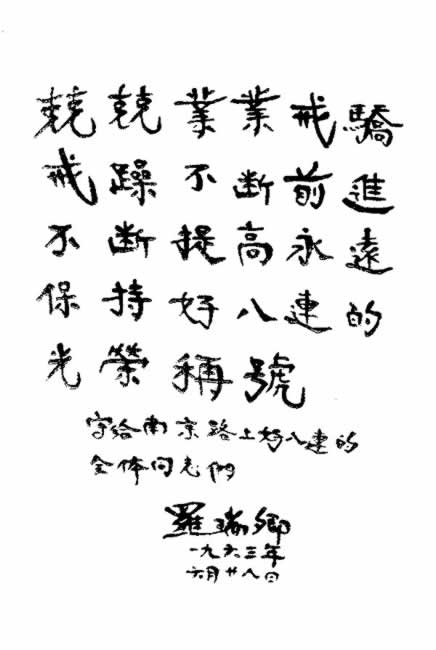 兢兢業業戒驕
戒躁不断前進
不断提高永遠
保持好八連的
光榮稱號
写给南京路上好八連的
全体同志們
羅瑞卿
一九六三年
六月廿八日